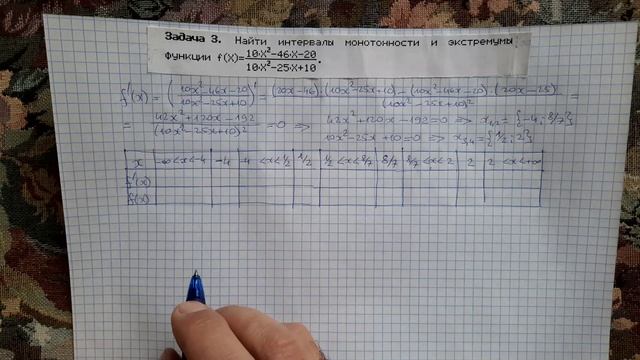 Задача 3. Найти интервалы монотонности и экстремумы
функции f(X)=(10·X²-46·X-20)/(10·X²-25·X+10).
f'(x) = ((10x²-46x-20)/(10x²-25x+10))' = ((20x-46)·(10x²-25x+10)-(10x²-46x-20)·(20x-25))/(10x²-25x+10)² =
= (42x²+120x-192)/(10x²-25x+10)² = 0 ⇒ 42x²+120x-192=0 ⇒ x₁,₂={-4; 8/7}
10x²-25x+10=0 ⇒ x₃,₄={1/2; 2}
x -∞<x<-4 -4 -4<x<1/2 1/2 1/2<x<8/7 8/7 8/7<x<2 2 2<x<+∞
f'(x)
f(x)